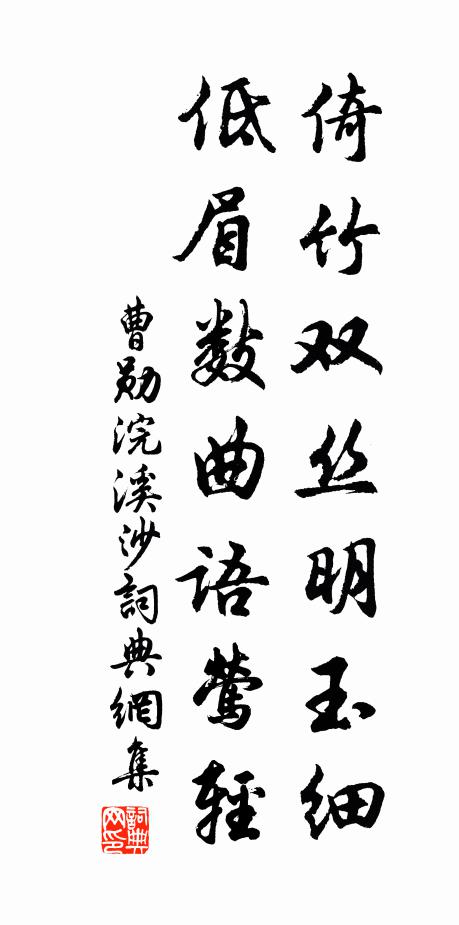 倚竹双丝明玉细
低眉数曲语莺轻
曹勋浣溪沙詞典網集
詞典
网印